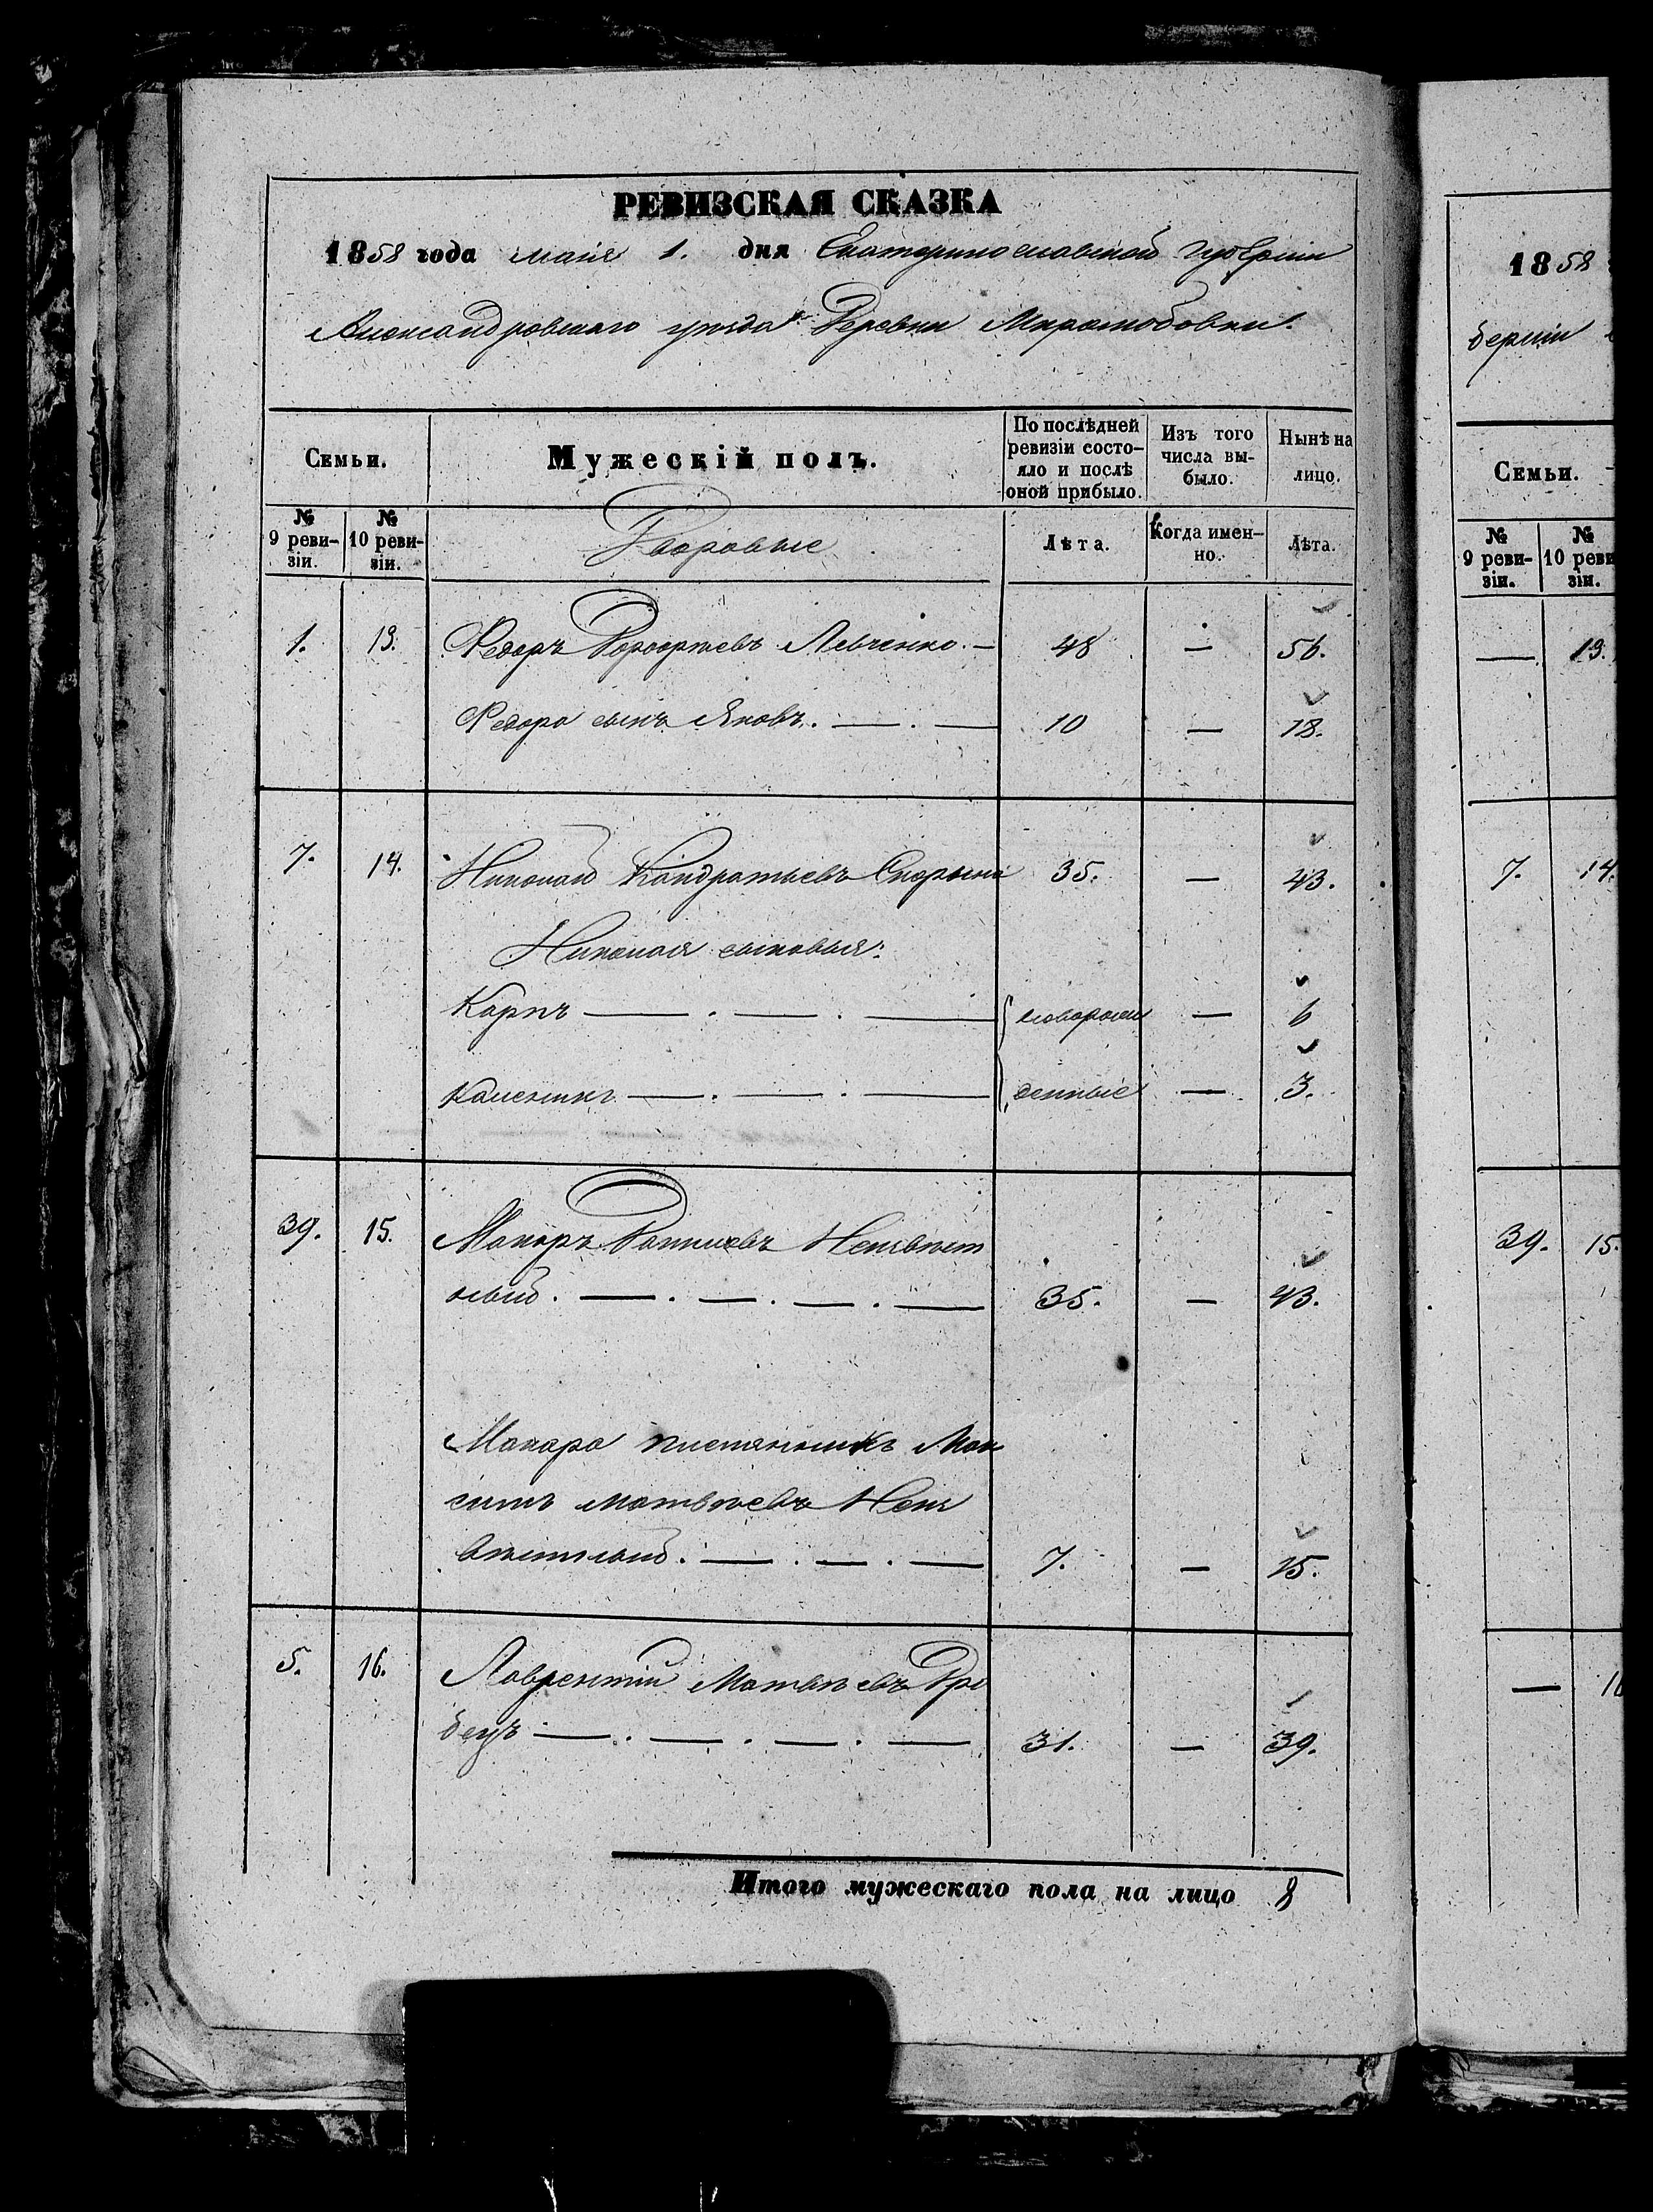 РЕВИЗСКАЯ СКАЗКА
1858 года маія 1. дня Екатеринославской губерніи
Александровскаго уѣзда Деревни Миролюбовки.
Семьи.
Мужескій полъ.
По послѣдней ревизіи состояло и послѣ оной прибыло.
Изъ того числа выбыло.
Нынѣ на лицо.
№ 9 ревизіи.
№ 10 ревизіи.
Дворовые
Лѣта.
Когда именно.
Лѣта.
1. 13. Федоръ Левченко. — 48 — 56.
Федора сынъ Яковъ. — . — 10 — 18.
7. 14. Николай Кондратьевъ 35. — 43.
Николая сыновья:
Карпъ — . — . — новорож — 6
Калениkъ — . — . — денные — 3.
39. 15. Макаръ Даниловъ Непѣвпет
лый . — . — . — . — 35. — 43.
Макара племянникъ Мак
симъ Матвѣевъ Неп
. — . — . — 7. — 15.
5. 16. Лаврентій Матвѣевъ Дро
бецъ — . — . — . — 31. — 39.
Итого мужескаго пола на лицо 8
1858
берніи
Семьи.
№ 9 ревизіи.
№ 10 реви зіи.
— 13.
7. 14.
39. 15.
— 16